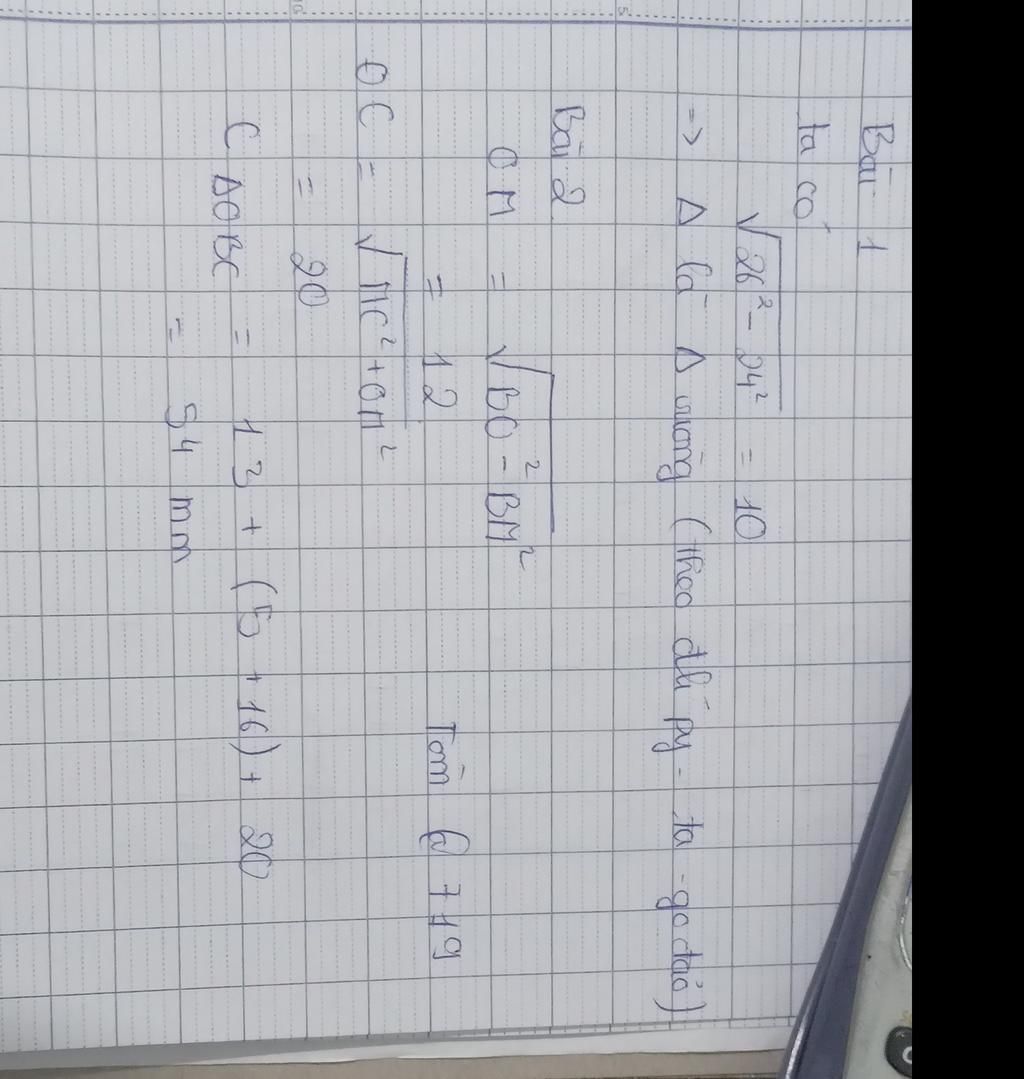 Bài 1
ta có
√26² - 24² = 10
=> Δ là Δ vuông (theo đlí py - ta - go đảo)
Bài 2
OM = √BO² - BM²
= 12
OC = √MC² + OM²
= 20
Tom @ 719
C ΔOBC = 13 + (5 + 16) + 20
= 54 mm